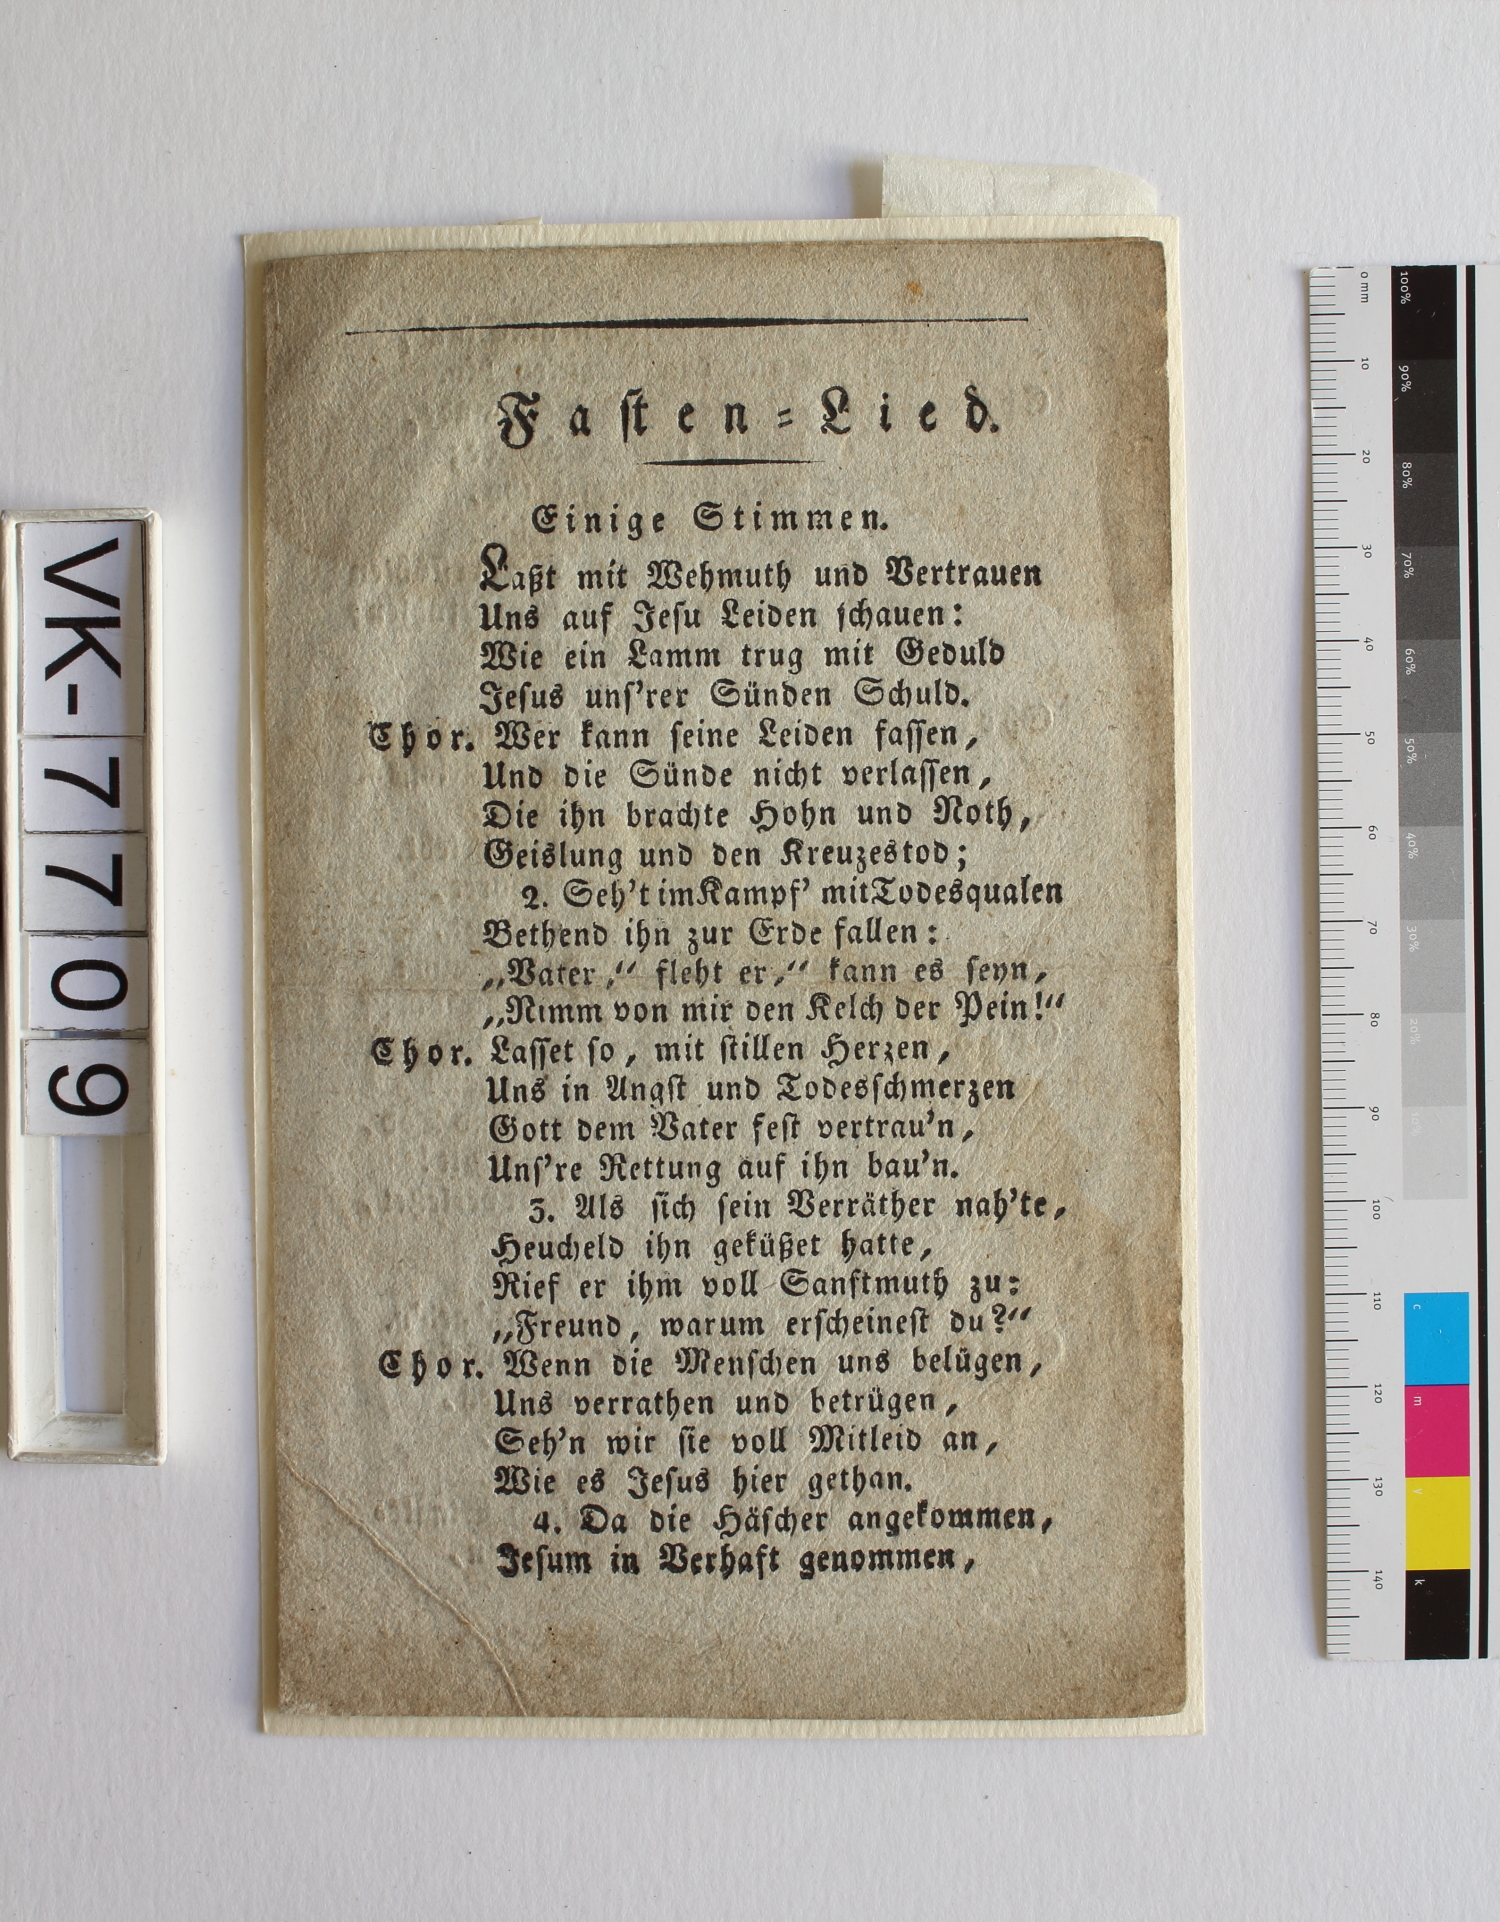 Fasten=Lied.
Einige Stimmen.
Laßt mit Wehmuth und Vertrauen
Uns auf Jesu Leiden schauen:
Wie ein Lamm trug mit Geduld
Jesus uns'rer Sünden Schuld.
Chor. Wer kann seine Leiden fassen,
Und die Sünde nicht verlassen,
Die ihn brachte Hohn und Noth,
Geislung und den Kreuzestod;
2. Seh't im Kampf' mit Todesqualen
Bethend ihn zur Erde fallen:
„Vater,“ fleht er,“ kann es seyn,
„Nimm von mir den Kelch der Pein!“
Chor. Lasset so, mit stillen Herzen,
Uns in Angst und Todesschmerzen
Gott dem Vater fest vertrau'n,
Uns're Rettung auf ihn bau'n.
3. Als sich sein Verräther nah'te,
Heucheld ihn geküßet hatte,
Rief er ihm voll Sanftmuth zu:
„Freund, warum erscheinest du?“
Chor. Wenn die Menschen uns belügen,
Uns verrathen und betrügen,
Seh'n wir sie voll Mitleid an,
Wie es Jesus hier gethan.
4. Da die Häscher angekommen,
Jesum in Verhaft genommen,
VK-7709
0 mm
10
20
30
40
50
60
70
80
90
100
110
120
130
140
100%
90%
80%
70%
60%
50%
40%
30%
20%
10%
c
m
y
k